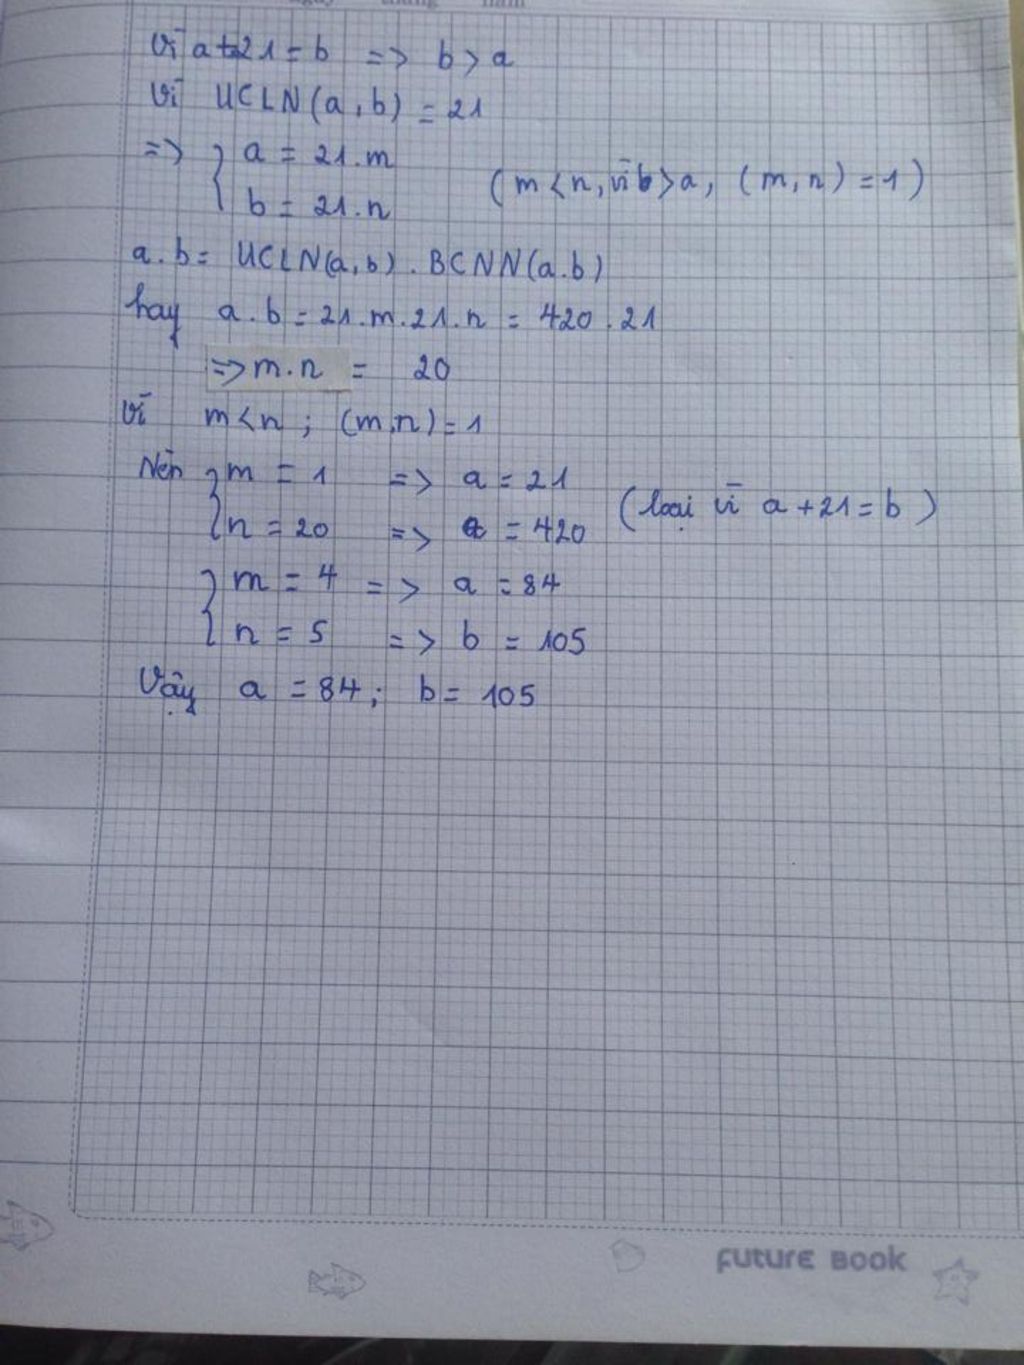 Vì a+21=b => b > a
Vì UCLN(a,b) = 21
=> { a = 21.m
b = 21.n (m<n, vì b>a, (m,n)=1)
a.b= UCLN(a,b). BCNN(a.b)
hay a.b=21.m.21.n = 420.21
=> m.n = 20
Vì m<n ; (m,n)=1
Nên { m = 1 => a = 21
n = 20 => = 420 (loại vì a+21=b)
{ m = 4 => a = 84
n = 5 => b = 105
Vậy a = 84; b = 105
FUTURE BOOK